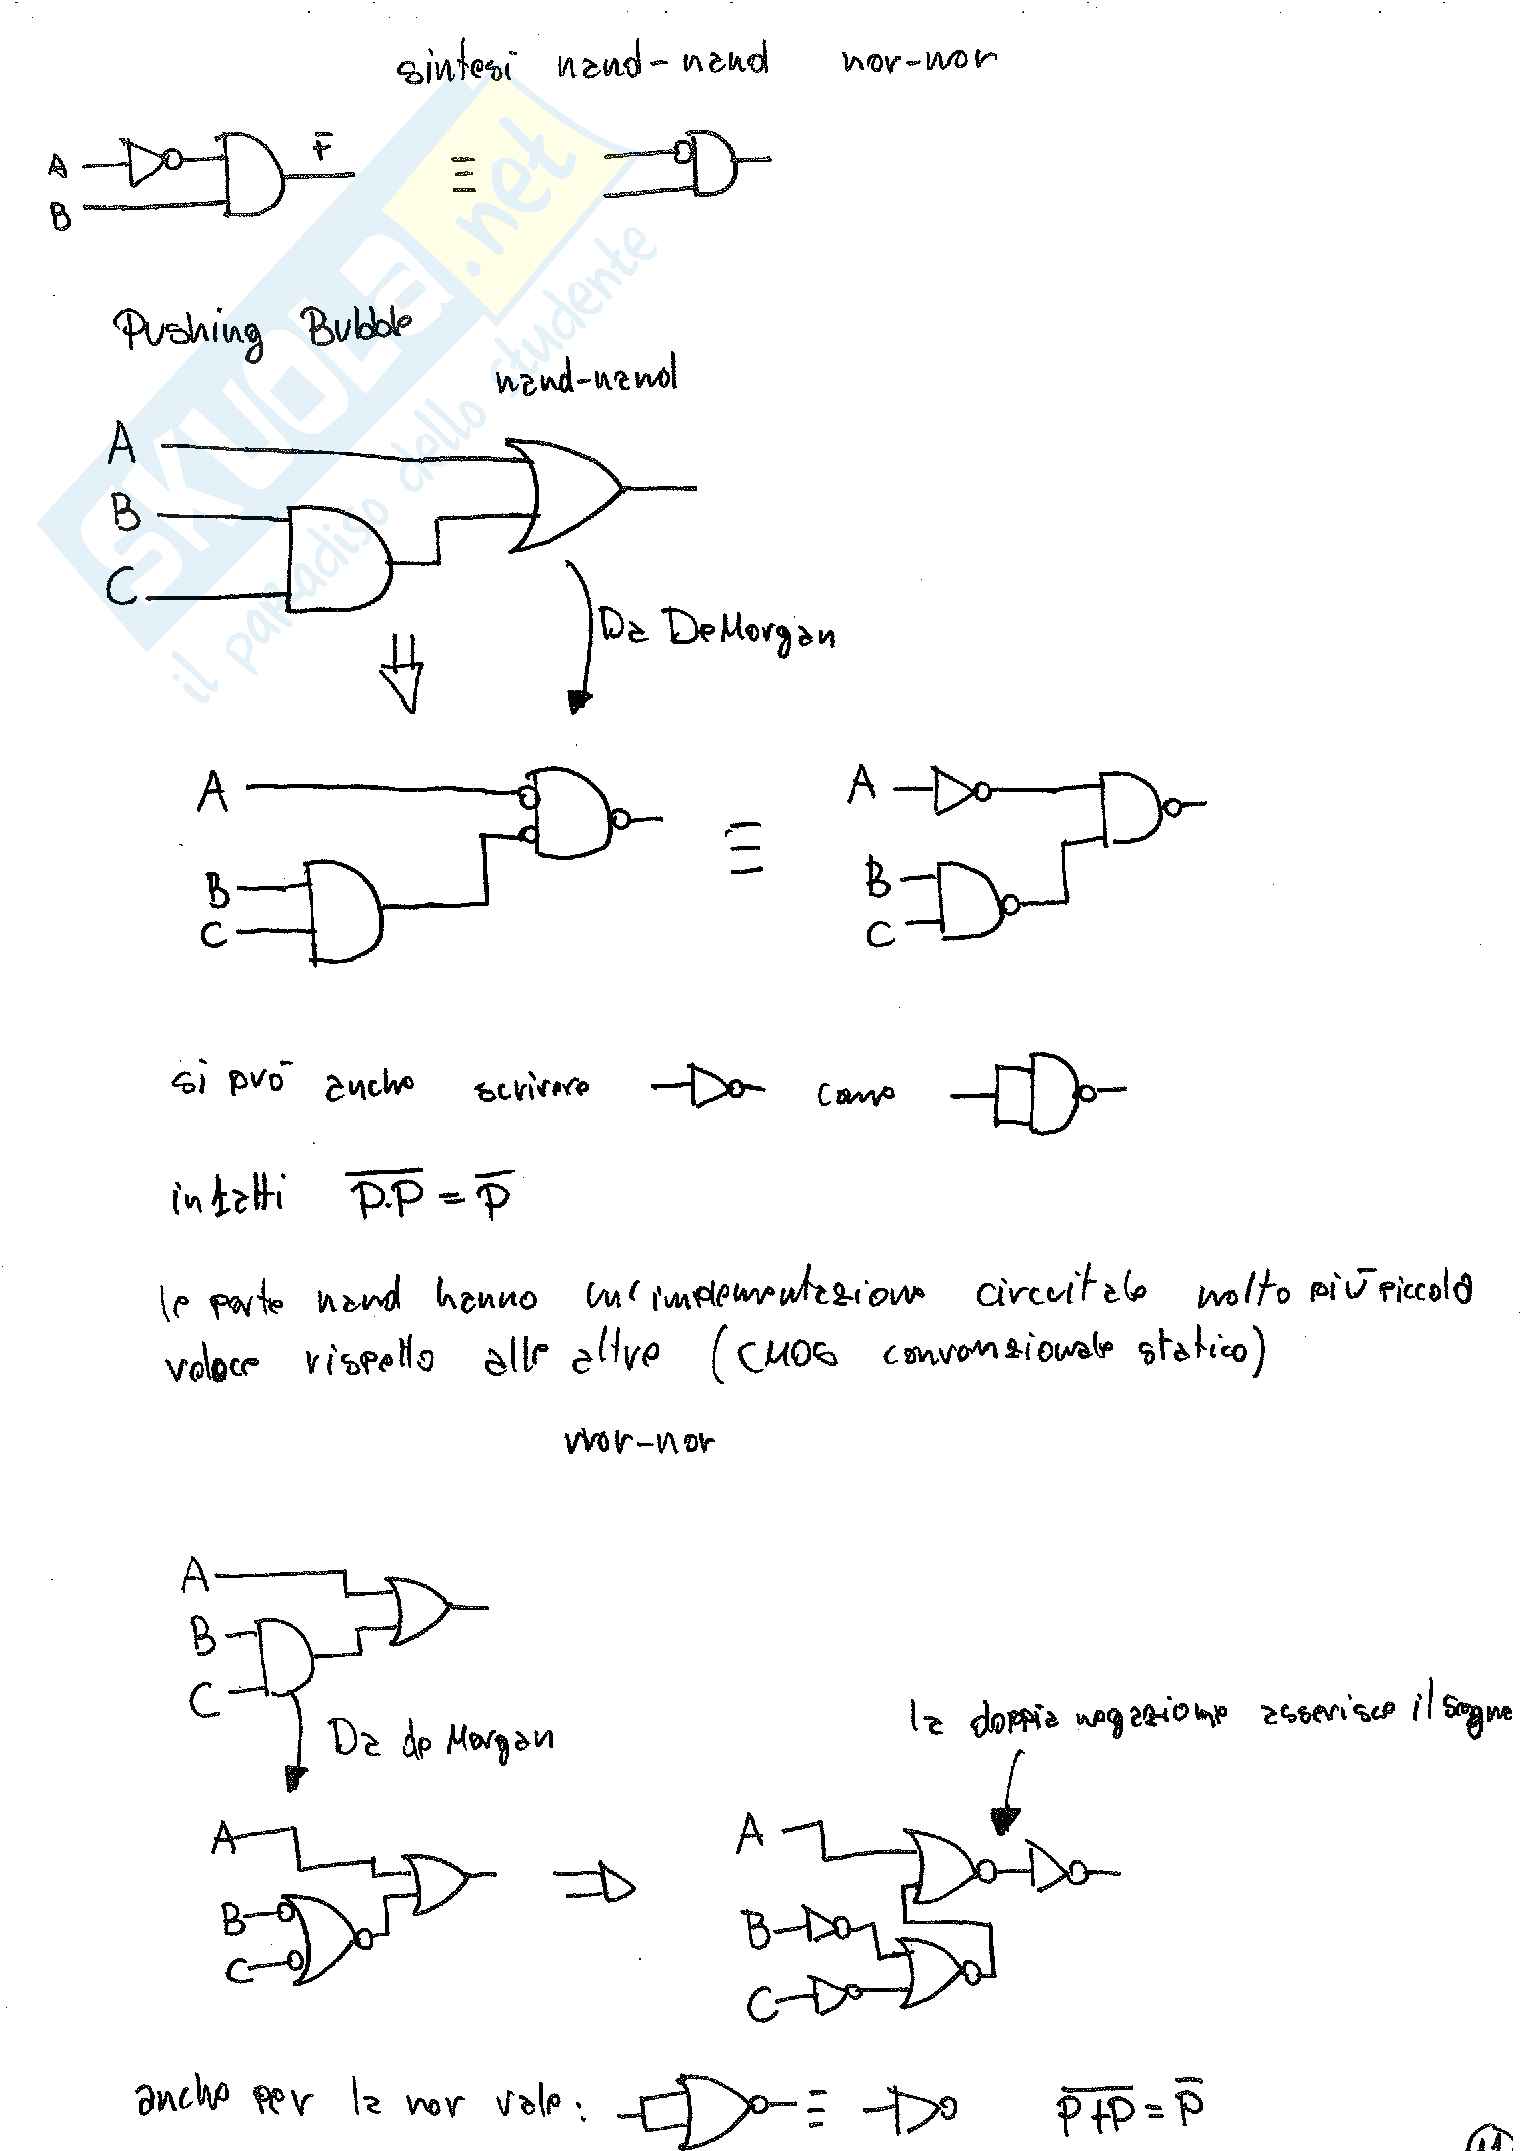 sintesi nand-nand nor-nor
A
B
F̅
≡
Pushing Bubble
nand-nand
A
B
C
Da DeMorgan
A
B
C
≡
A
B
C
si può anche scrivere come
infatti \overline{P.P} = \overline{P}
le porte nand hanno un'implementazione circuitale molto più piccola
veloce rispetto alle altre (CMOS convenzionale statico)
nor-nor
A
B
C
Da de Morgan
la doppia negazione asserisce il segne
A
B
C
A
B
C
anche per la nor vale: ≡ \overline{P+P} = \overline{P}
11
SKUOLA.net
il paradiso dello studente